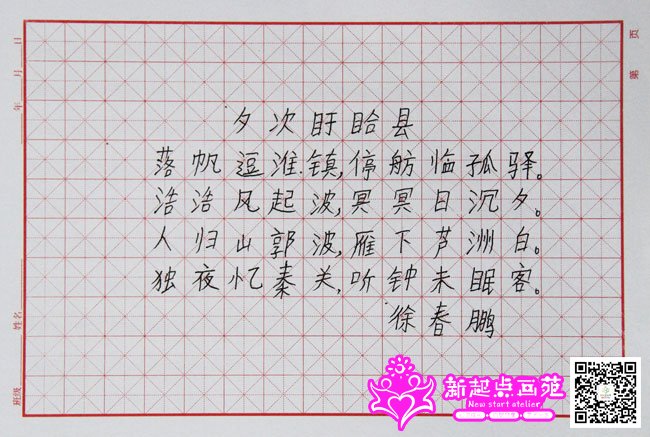 夕次盱眙县
落帆逗淮镇,停舫临孤驿。
浩浩风起波,冥冥日沉夕。
人归山郭波,雁下芦洲白。
独夜忆秦关,听钟未眠客。
徐春鹏
第 页
班级 姓名 年 月 日
新起点画苑
New start atelier